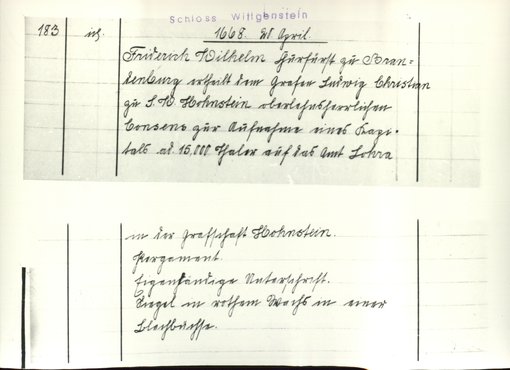 Schloss Wittgenstein
183 icf. 1668. 28 April.
Friderich Wilhelm Churfürst zu Bran=
denburg ertheilt dem Grafen Ludwig Christian
zu S. W. Hohnstein oberlehnsherrlichen
Consens zur Aufnahme eines Kapi-
tals ad. 15,000 Thaler auf das Amt Lohra
in der Grafschaft Hohnstein.
Pergament.
Eigenhändige Unterschrift.
Siegel in rothem Wachs in einer
Blechbüchse.